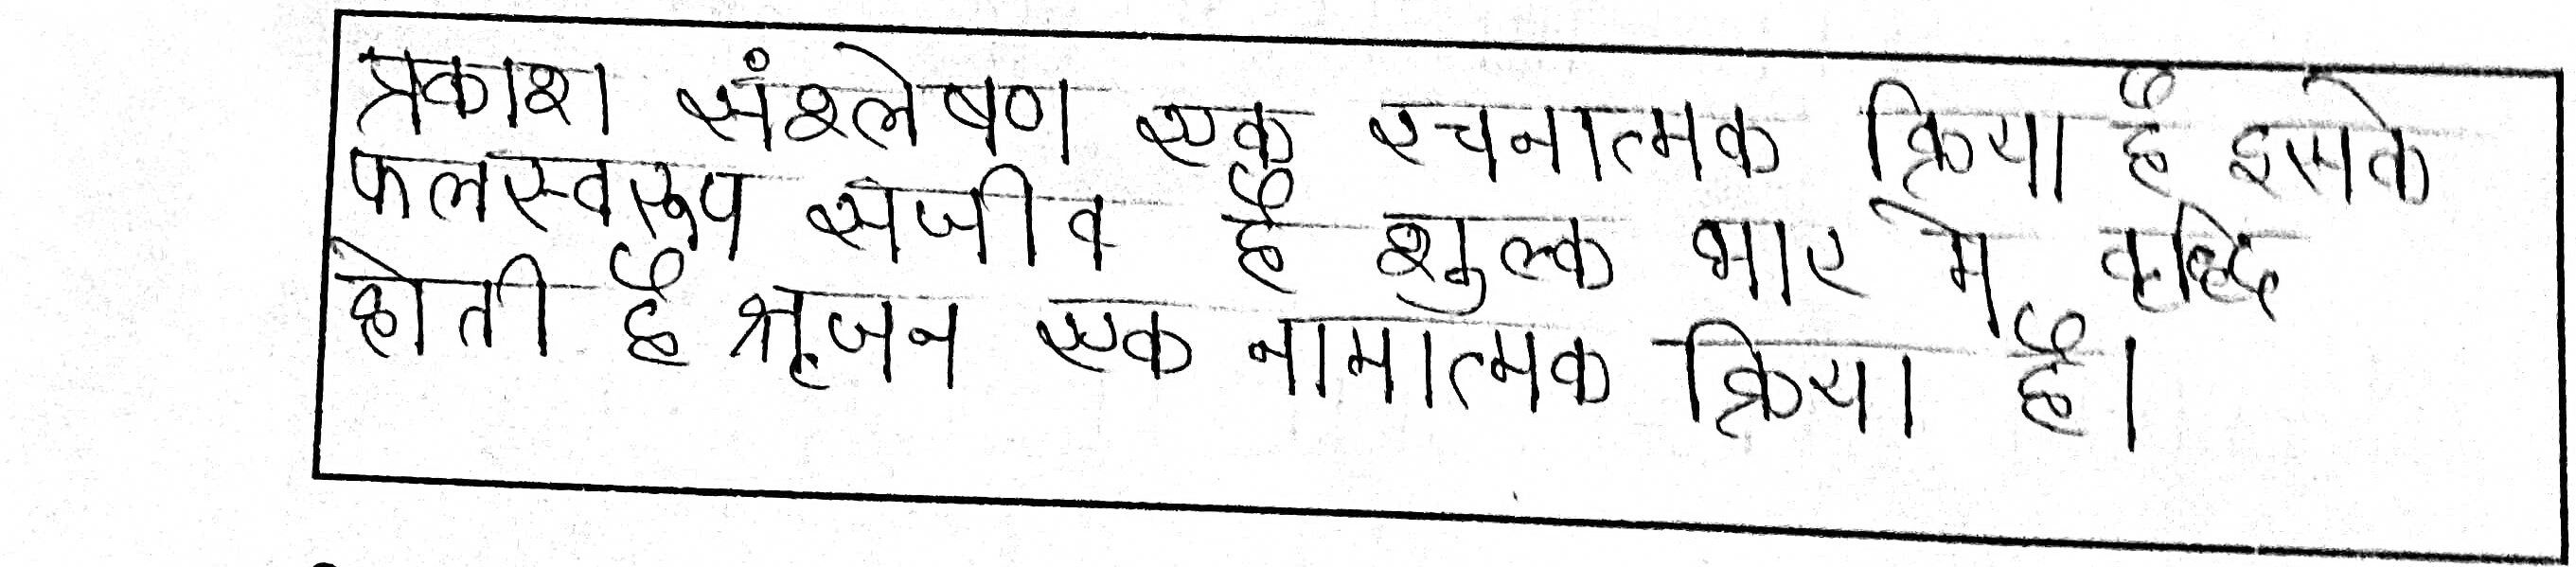 प्रकाश संश्लेषण एक रचनात्मक क्रिया है इसके
फलस्वरूप सजीव है शुल्क भार मे वृद्धि
होती है श्रृजन एक नामात्मक क्रिया है।